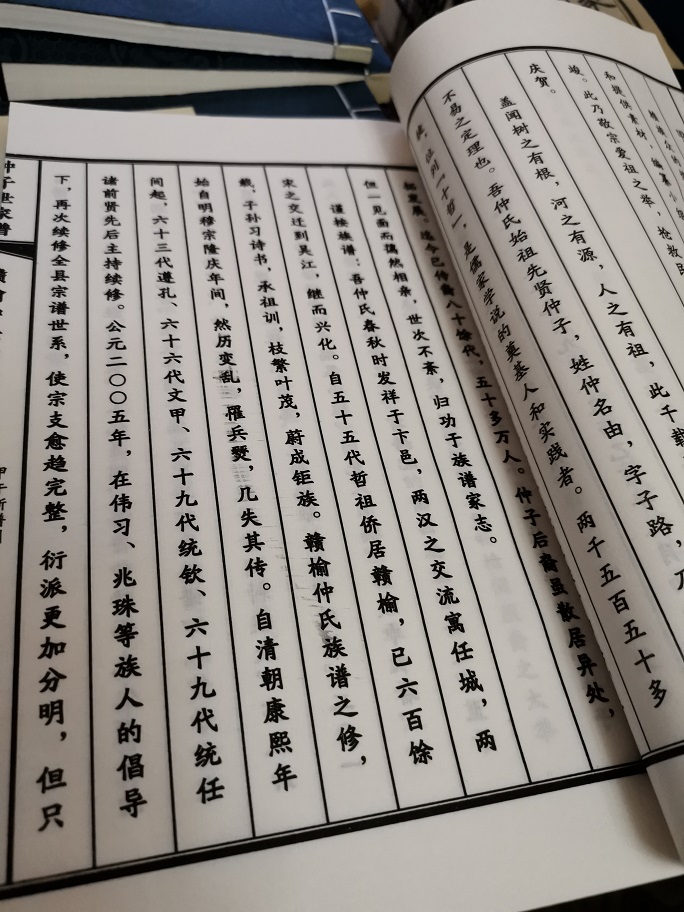 和提供素材，编纂小
竣。此乃敬宗爱祖之举，抢救民
庆贺。
盖闻树之有根，河之有源，人之有祖，此千载
不易之定理也。吾仲氏始祖先贤仲子，姓仲名由，字子路，乃
位列“十哲”，是儒家学说的奠基人和实践者。两千五百五十多
发展，迄今已传裔八十馀代，五十多万人。仲子后裔虽散居异处，
但一见面而蔼然相亲，世次不紊，归功于族谱家志。
谨按族谱：吾仲氏春秋时发祥于卞邑，两汉之交流寓任城，两
宋之交迁到吴江，继而兴化。自五十五代哲祖侨居赣榆，已六百馀
载，子孙习诗书，承祖训，枝繁叶茂，蔚成钜族。赣榆仲氏族谱之修，
始自明穆宗隆庆年间，然历变乱，罹兵燹，几失其传。自清朝康熙年
间起，六十三代遵孔、六十六代文甲、六十九代统钦、六十九代统任
诸前贤先后主持续修。公元二〇〇五年，在伟习、兆珠等族人的倡导
下，再次续修全县宗谱世系，使宗支愈趋完整，衍派更加分明，但只
仲子世家谱